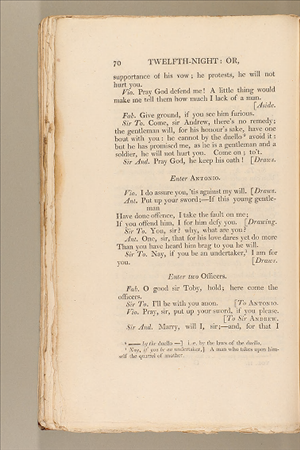 70 TWELFTH-NIGHT: OR,
supportance of his vow; he protests, he will not
hurt you.
Vio. Pray God defend me! A little thing would
make me tell them how much I lack of a man.
[Aside.
Fab. Give ground, if you see him furious.
Sir To. Come, sir Andrew, there's no remedy;
the gentleman will, for his honour's sake, have one
bout with you: he cannot by the duello⁴ avoid it:
but he has promised me, as he is a gentleman and a
soldier, he will not hurt you. Come on; to't.
Sir And. Pray God, he keep his oath! [Draws.
Enter ANTONIO.
Vio. I do assure you, 'tis against my will. [Draws.
Ant. Put up your sword;—If this young gentle-
man
Have done offence, I take the fault on me;
If you offend him, I for him defy you. [Drawing.
Sir To. You, sir? why, what are you?
Ant. One, sir, that for his love dares yet do more
Than you have heard him brag to you he will.
Sir To. Nay, if you be an undertaker,⁵ I am for
you. [Draws.
Enter two Officers.
Fab. O good sir Toby, hold; here come the
officers.
Sir To. I'll be with you anon. [To ANTONIO.
Vio. Pray, sir, put up your sword, if you please.
[To Sir ANDREW.
Sir And. Marry, will I, sir;—and, for that I
⁴ —— by the duello —] i. e. by the laws of the duello.
⁵ Nay, if you be an undertaker,] A man who takes upon him-
self the quarrel of another.